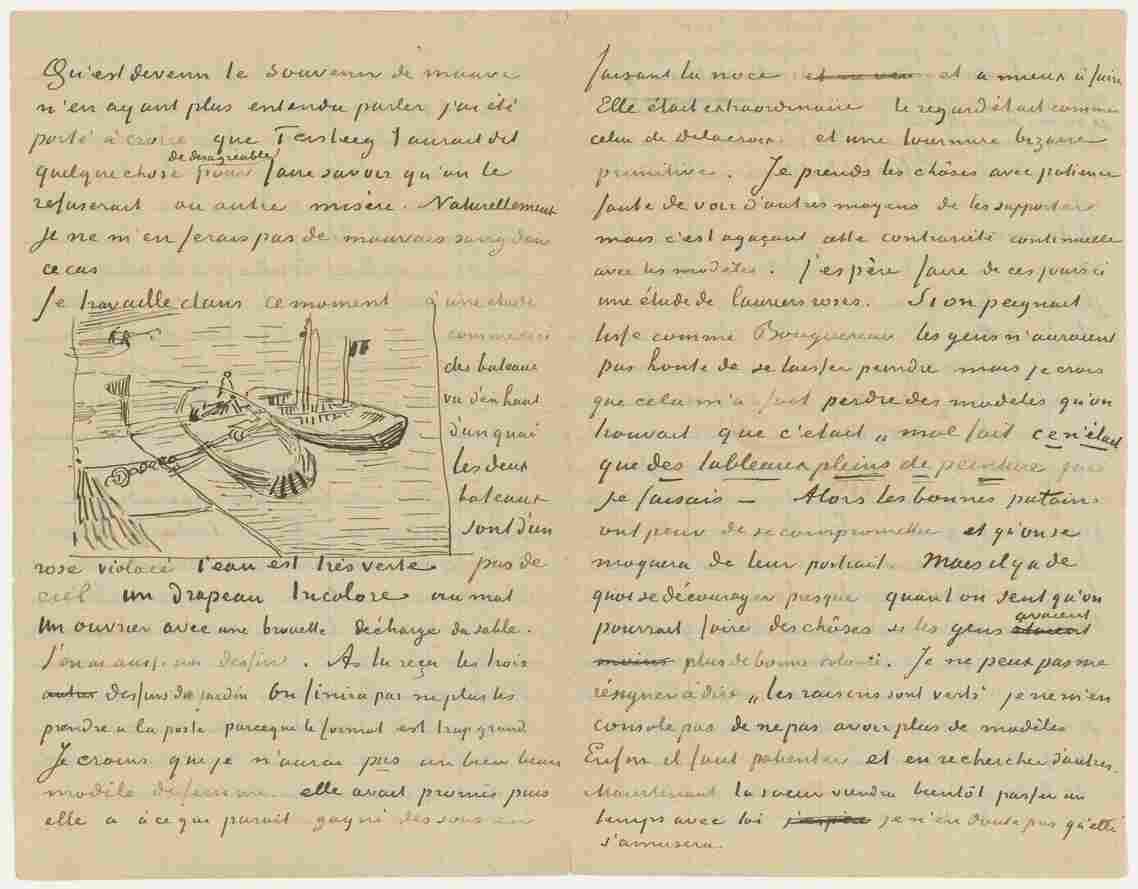 Qu'est devenu le Souvenir de mauve
n'en ayant plus entendu parler j'ai été
porté à croire que Tersteeg t'aurait dit
quelque chose de désagréable pour faire savoir qu'on le
refuserait ou autre misère. Naturellement
je ne m'en ferais pas de mauvais sang dans
ce cas
Je travaille dans ce moment à une étude
comme ceci
des bateaux
vu d'en haut
d'un quai
les deux
bateaux
sont d'un
rose violacé l'eau est très verte pas de
ciel un drapeau tricolore au mat
Un ouvrier avec une brouette décharge du sable.
J'en ai aussi un dessin. As tu reçu les trois
autres dessins du jardin On finira par ne plus les
prendre a la poste parceque le format est trop grand
Je crains que je n'aurai pas un bien beau
modèle de femme. elle avait promis puis
elle a à ce que parait gagné des sous en
faisant la noce et a mieux à faire
Elle était extraordinaire le regard était comme
celui de Delacroix. et une tournure bizarre
primitive. Je prends les chôses avec patience
faute de voir d'autres moyens de les supporter
mais c'est agaçant cette contrariété continuelle
avec les modèles. J'espère faire de ces jours ci
une étude de lauriers roses. Si on peignait
lisse comme Bouguereau les gens n'auraient
pas honte de se laisser peindre mais je crois
que cela m'a fait perdre des modeles qu'on
trouvait que c'était „mal fait ce n'était
que des tableaux pleins de peinture que
je faisais — Alors les bonnes putains
ont peur de se compromettre et qu'on se
moquera de leur portrait. Mais il y a de
quoi se décourager presque quant on sent qu'on
pourrait faire des chôses si les gens avaient étaient
moins plus de bonne volonté. Je ne peux pas me
résigner à dire „les raisins sont verts" je ne m'en
console pas de ne pas avoir plus de modèles
Enfin il faut patienter et en rechercher d'autres.
Maintenant la soeur viendra bientôt passer un
temps avec toi j'espère je n'en doute pas qu'elle
s'amusera.